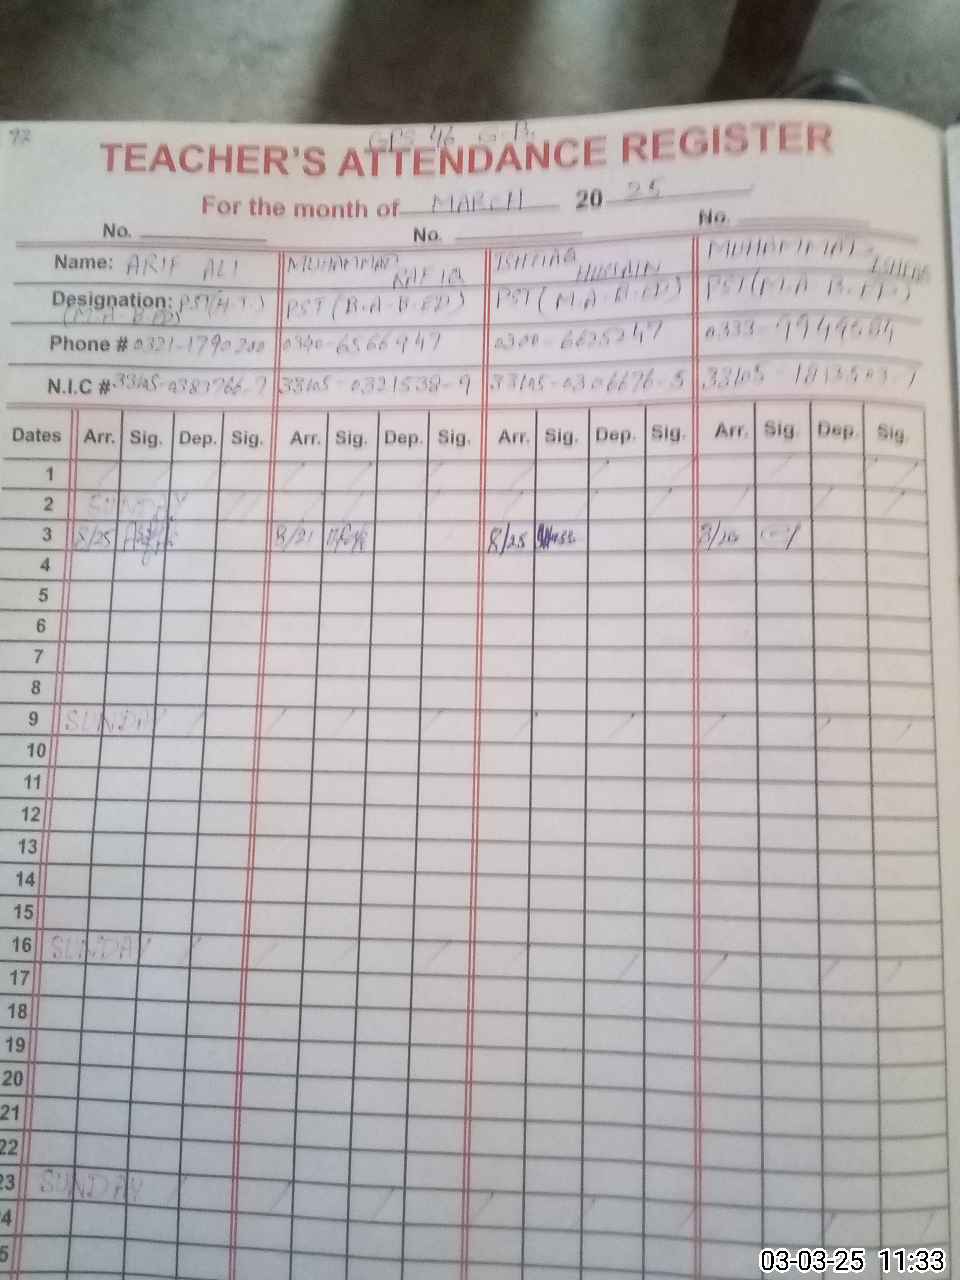 92
GPS 46 G.B.
TEACHER'S ATTENDANCE REGISTER
For the month of MARCH 20 25
No. No. No.
Name: ARIF ALI MUHAMMAD RAFIQ ISHTIAQ HUSSAIN MUHAMMAD
Designation: PST(H.T.) (M.A. B.ED) PST (B.A. B.ED) PST (M.A. B.ED) PST (M.A B.ED)
Phone # 0321-1790200 0340-6566947 0300-6625247
N.I.C # 33105-0383766-7 33105-0321538-9 33105-0306676-5
Dates Arr. Sig. Dep. Sig. Arr. Sig. Dep. Sig. Arr. Sig. Dep. Sig. Arr. Sig. Dep. Sig.
1
2 SUNDAY
3 8/25 8/21 8/25 8/20
4
5
6
7
8
9 SUNDAY
10
11
12
13
14
15
16 SUNDAY
17
18
19
20
21
22
23 SUNDAY
4
5
03-03-25 11:33